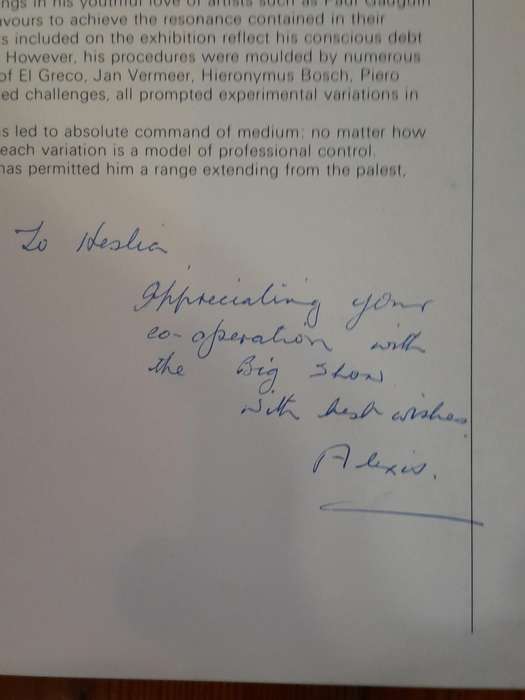 ngs in his youthful love of artists such as Paul Gauguin
avours to achieve the resonance contained in their
s included on the exhibition reflect his conscious debt
However, his procedures were moulded by numerous
of El Greco, Jan Vermeer, Hieronymus Bosch, Piero
ed challenges, all prompted experimental variations in
s led to absolute command of medium; no matter how
each variation is a model of professional control.
has permitted him a range extending from the palest,
To
Appreciating your
co-operation with
the Big Show
with best wishes
Alexis.